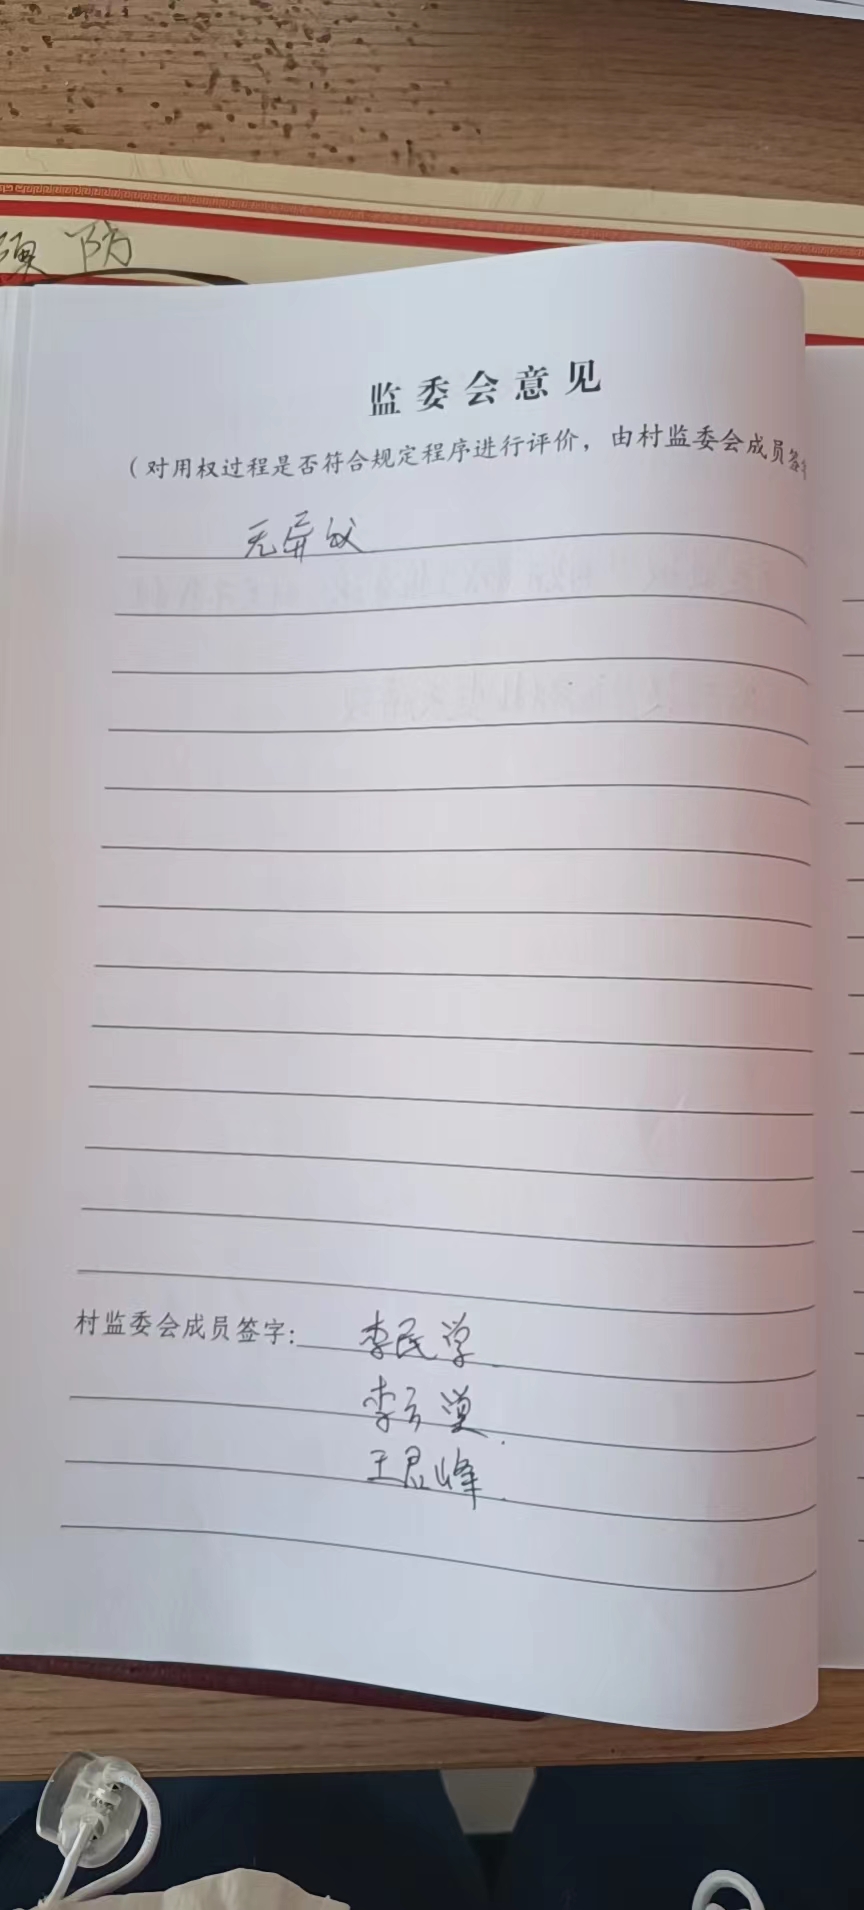 预防
监委会意见
（对用权过程是否符合规定程序进行评价，由村监委会成员签字
无异议
村监委会成员签字：李民学
李云
王君峰